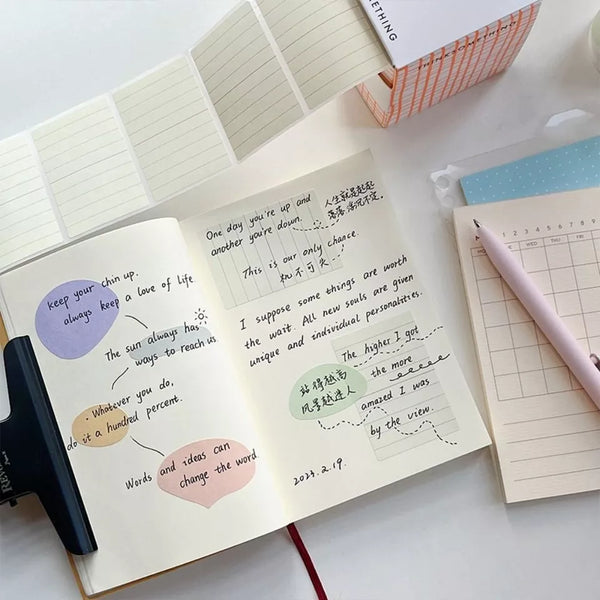 keep your chin up.
always keep a love of life
The sun always has
ways to reach us.
· Whatever you do,
do it a hundred percent.
Words and ideas can
change the word.
One day you're up and
another you're down.
人生就是起起
落落,浮沉不定。
This is our only chance.
机不可失
I suppose some things are worth
the wait. All new souls are given
unique and individual personalities.
The higher I got
the more
amazed I was
by the view.
站得越高
风景越迷人
2023.2.19.
THINKSOMETHING
ETHING